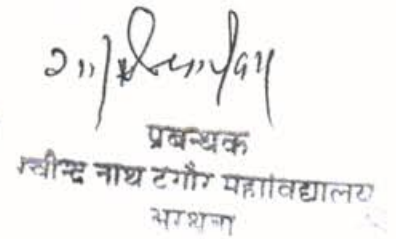 प्रबन्धक
रवीन्द्र नाथ टैगौर महाविद्यालय
भरथना